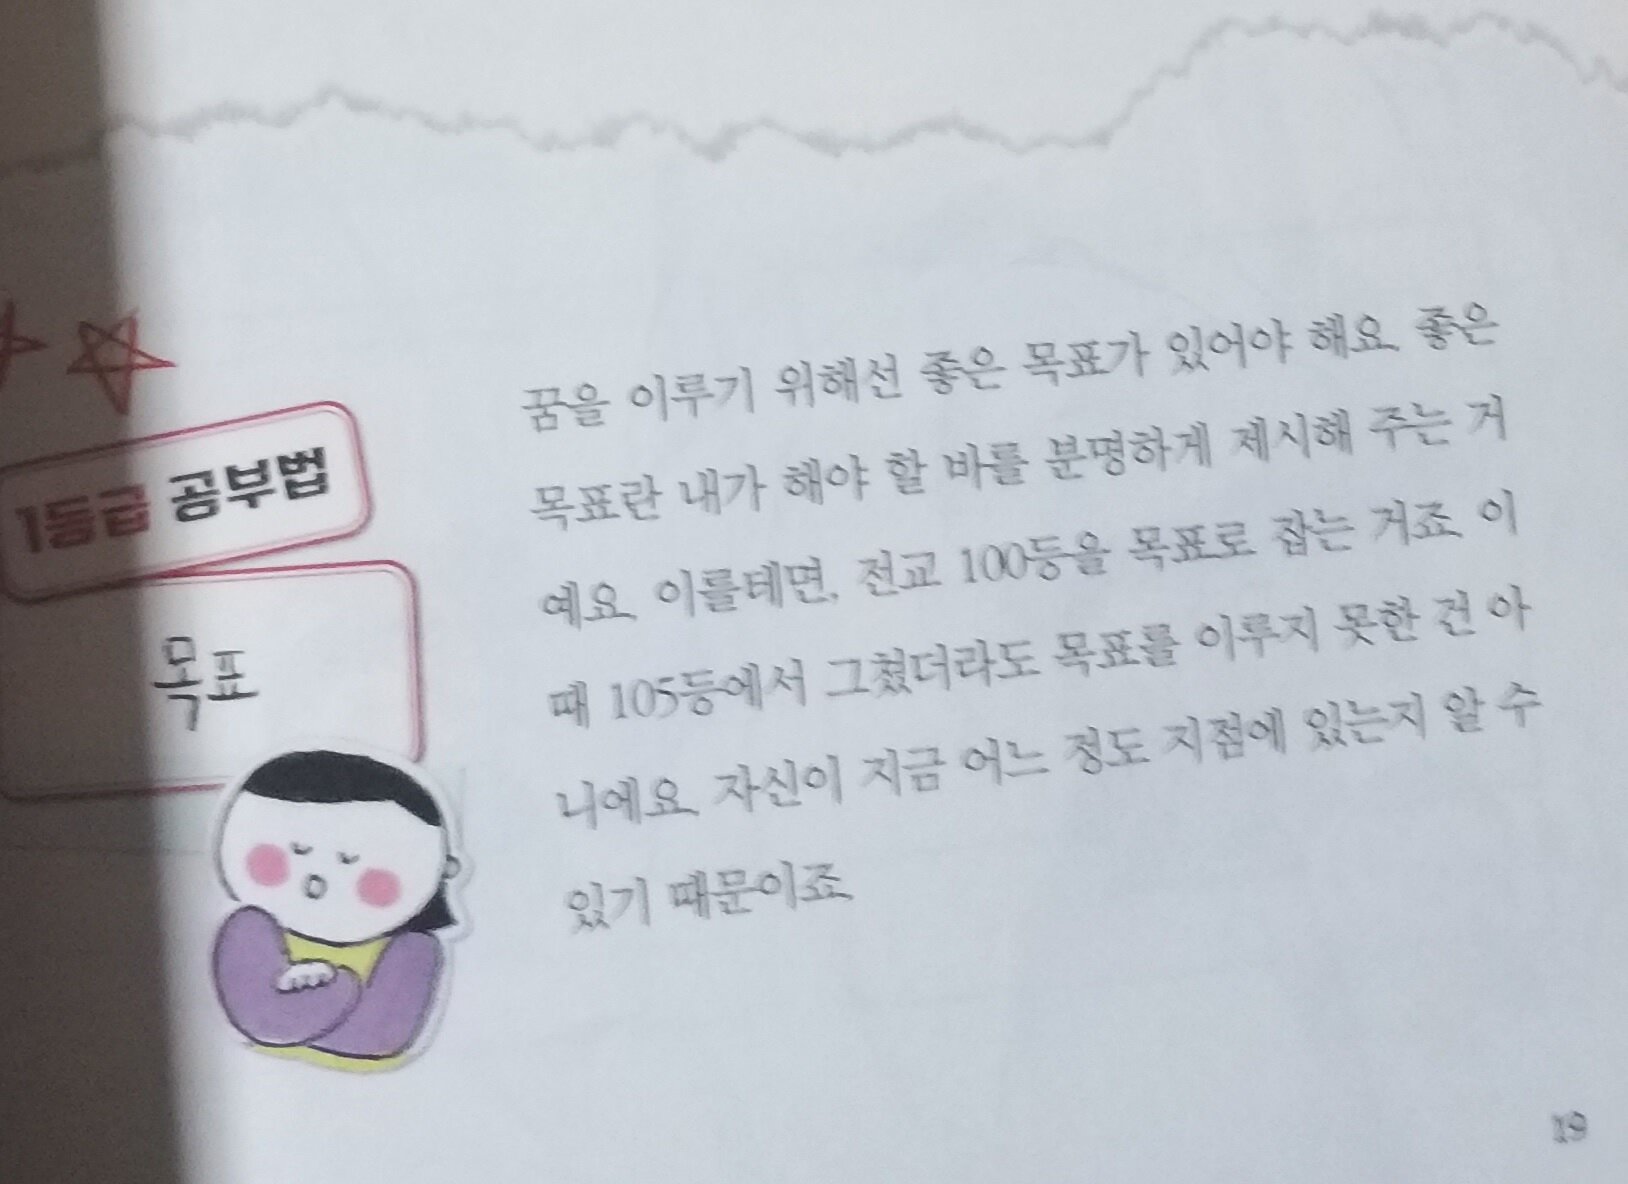 1등급 공부법
목표
꿈을 이루기 위해선 좋은 목표가 있어야 해요. 좋은
목표란 내가 해야 할 바를 분명하게 제시해 주는 거
예요. 이를테면, 전교 100등을 목표로 잡는 거죠. 이
때 105등에서 그쳤더라도 목표를 이루지 못한 건 아
니에요. 자신이 지금 어느 정도 지점에 있는지 알 수
있기 때문이죠.
19